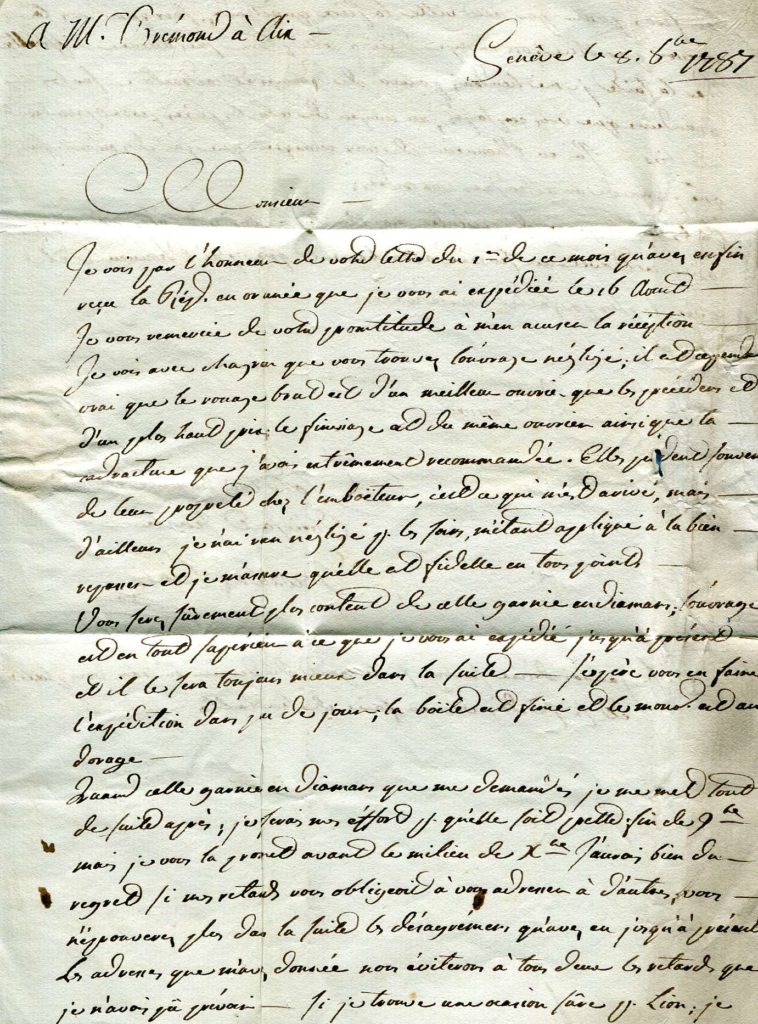 A M. Brémond à Aix —
Genêve le 8. 8bre 1787
Monsieur —
Je vois par l'honneur de votre lettre du 1er de ce mois qu'avez enfin
reçu la Rép. en or année que je vous ai expédiée le 16 Aoust —
Je vous remercie de votre promtitude à m'en acuser la réception —
Je vois avec chagrin que vous trouvez l'ouvrage négligé; il est cependt
vrai que le rouage brut est d'un meilleur ouvrier que les précédens et
d'un plus haut prix, le finissage est du même ouvrier ainsi que la
cadracture que j'avois extrêmement recommandée. Elles perdent souvent
de leur propreté chez l'emboëteur, c'est ce qui m'est arivé, mais —
d'ailleurs je n'ai rien négligé p. les soins, m'étant appliqué à la bien —
repasser et je m'assure qu'elle est fidelle en tous points —
Vous serez sûrement plus content de celle garnie en diamans, l'ouvrage
est en tout supérieur à ce que je vous ai expédié jusqu'à présent
et il le sera toujours mieux dans la suite — J'espère vous en faire
l'expédition dans peu de jours, la boëte est finie et le mouv. est au
dorage —
Quand celle garnie en diamans que me demandés je me met tout
de suite après; je ferais mes éffort p. qu'elle soit prette fin de 9bre
mais je vous la promet avant le milieu de Xbre J'aurais bien du —
regret si mes retards vous obligeoit à vous adresser à d'autres, vous —
n'éprouverez plus dans la suite les désagrémens qu'avez eu jusqu'à présent
Les adresses que m'avez donnée nous éviterons à tous deux les retards que
je n'avois pû prévoir — Si je trouve une ocasion sûre p. Lion, je